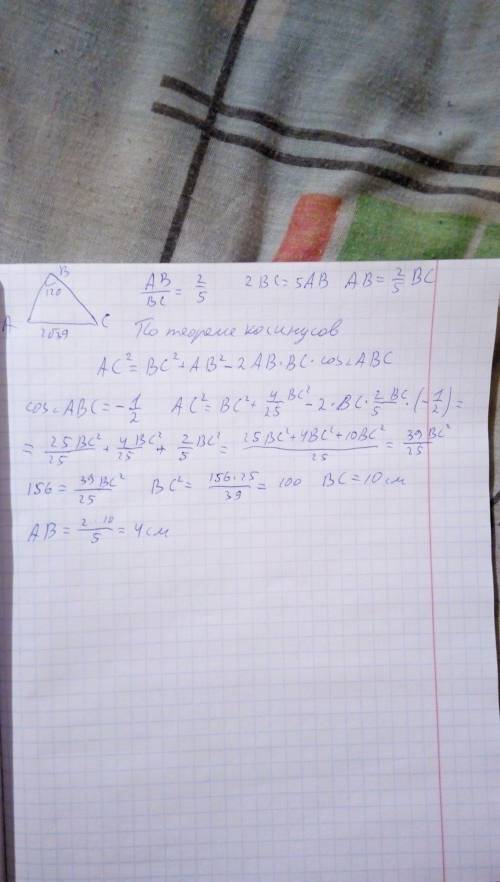 B
120
A
C
2√39
AB/BC = 2/5   2BC = 5AB   AB = 2/5 BC
По теореме косинусов
AC² = BC² + AB² - 2AB·BC·cos∠ABC
cos∠ABC = -1/2   AC² = BC² + 4/25 BC² - 2·BC·2/5 BC·(-1/2) =
= 25BC²/25 + 4BC²/25 + 2/5 BC² = (25BC² + 4BC² + 10BC²)/25 = 39BC²/25
156 = 39BC²/25   BC² = 156·25/39 = 100   BC = 10 см
AB = 2·10/5 = 4 см